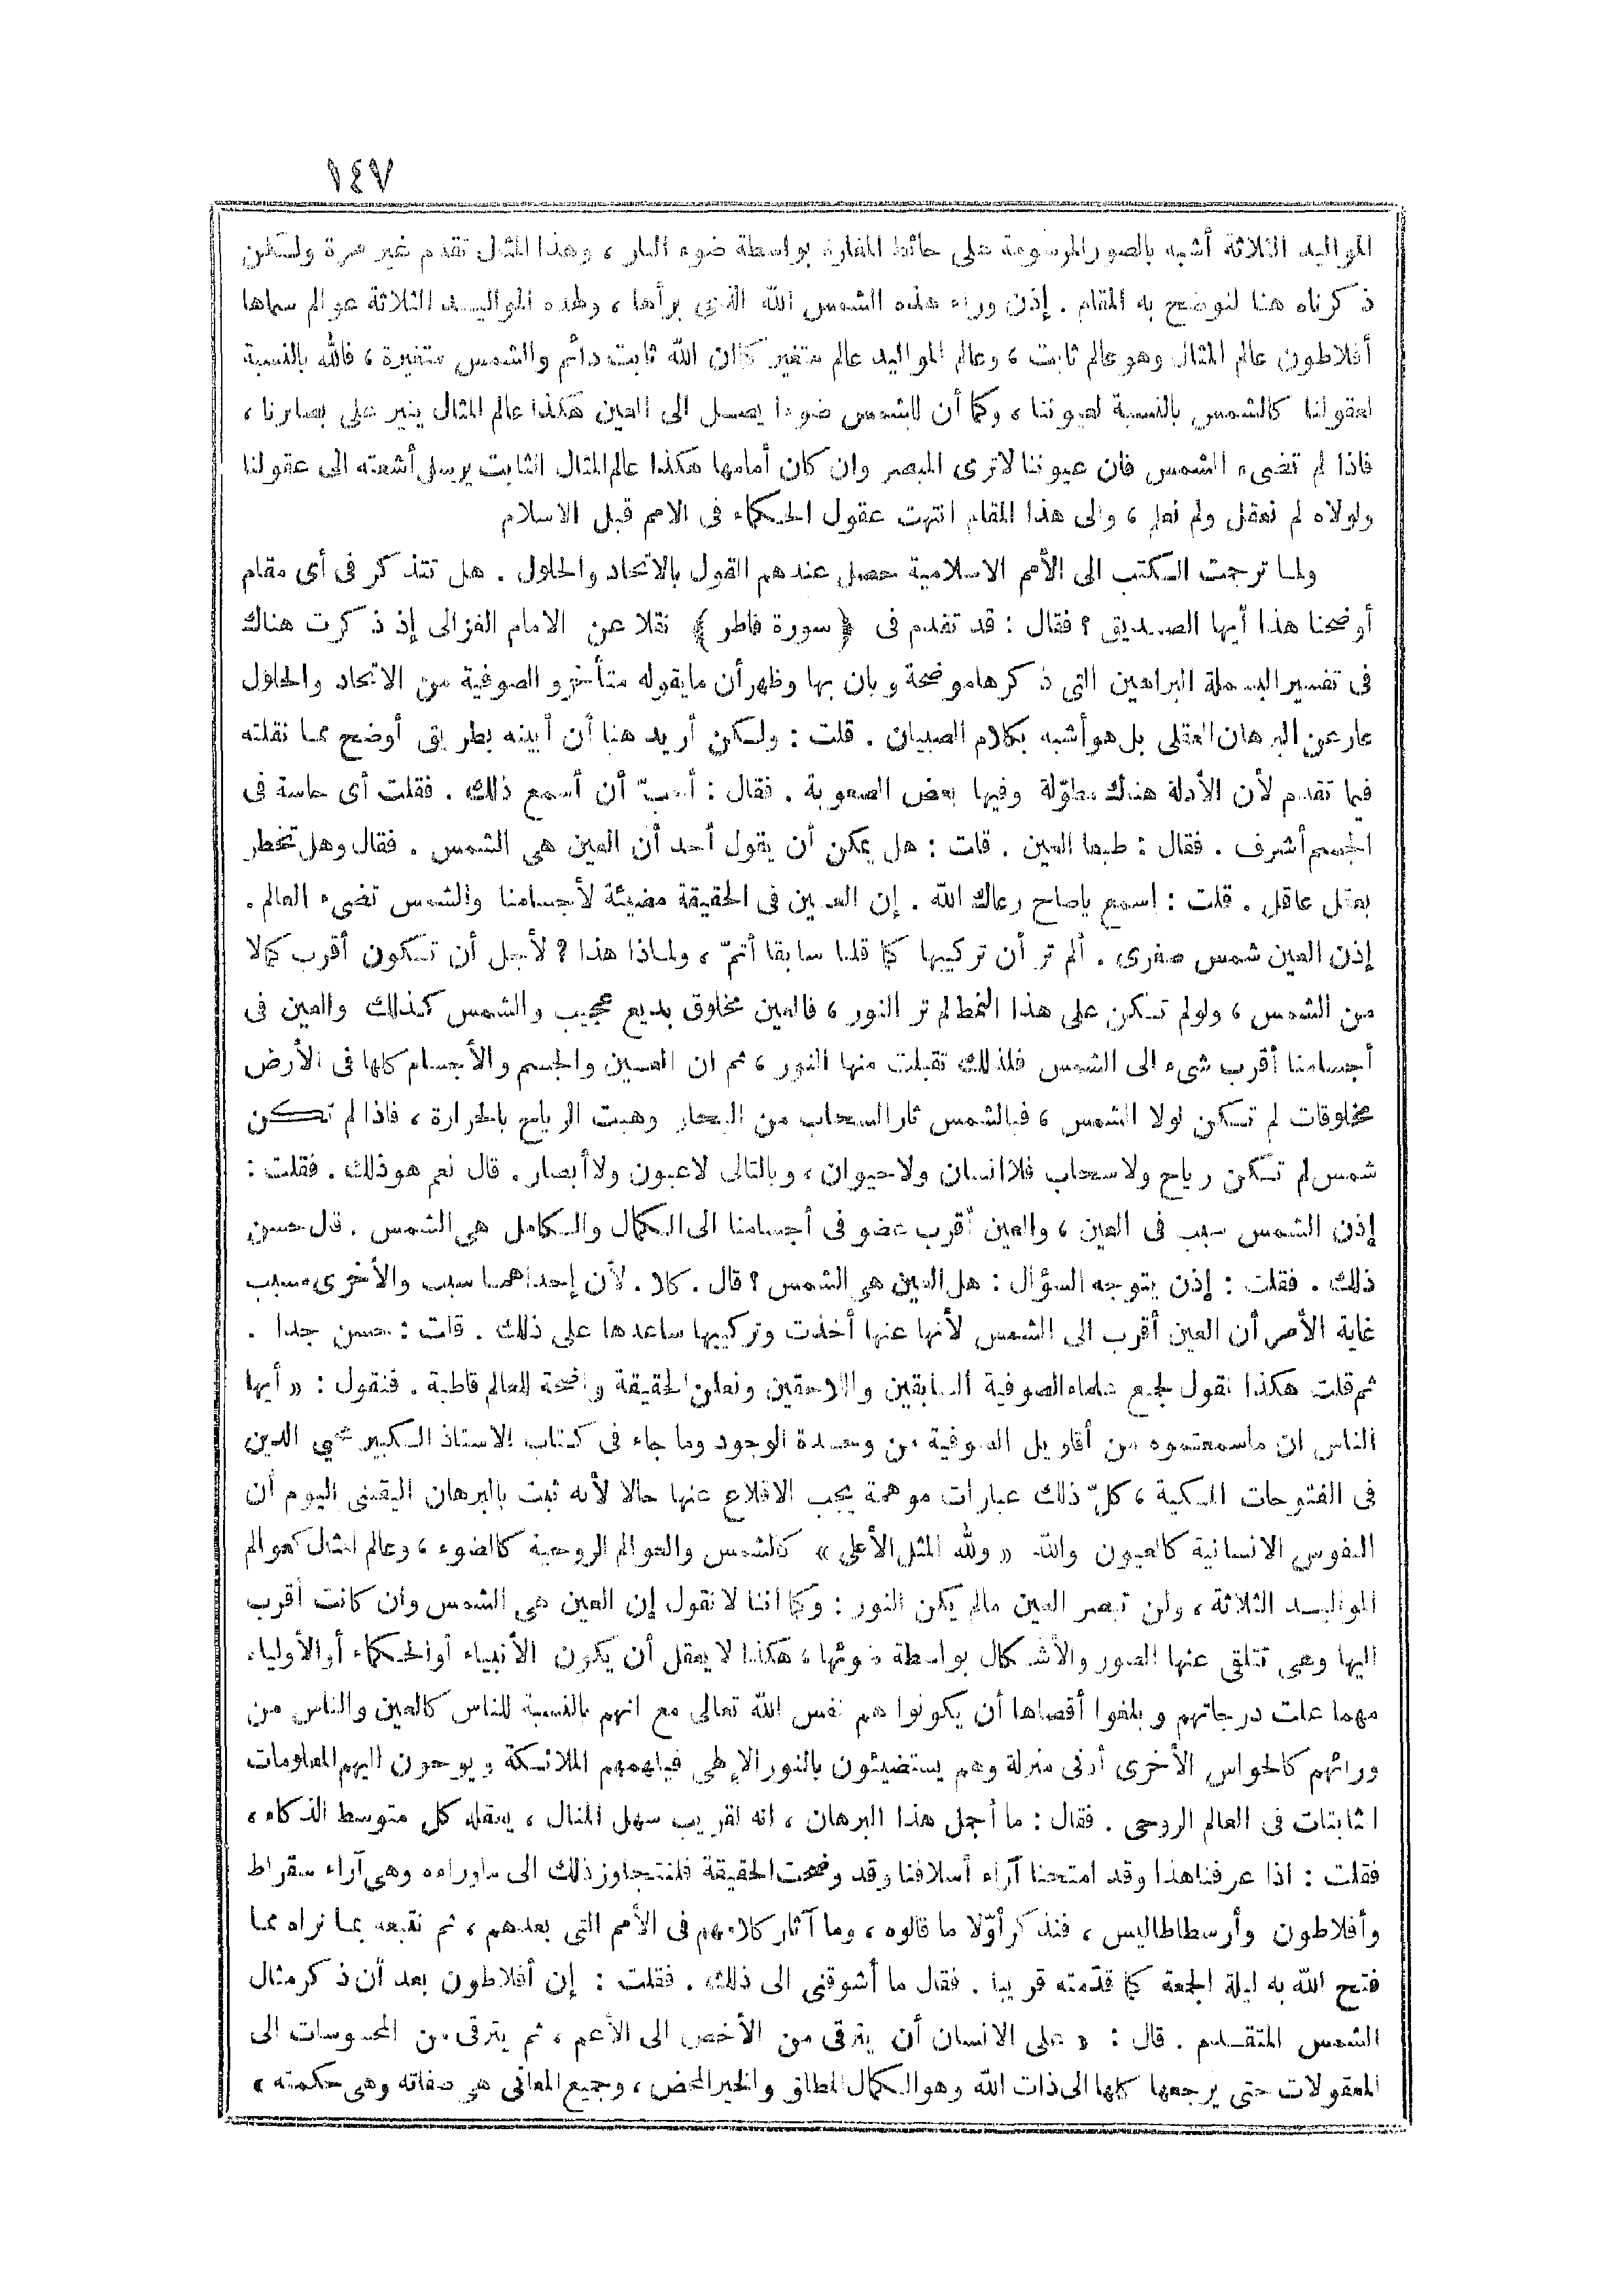 ١٤٧
المواليد الثلاثة أشبه بالصور المرسومة على حائط المغارة بواسطة ضوء النار ، وهذا المثل تقدم غير مرة ولكن
ذكرناه هنا لنوضح به المقام . إذن وراء هذه الشمس الله الذي برأها ، ولهذه المواليد الثلاثة عوالم سماها
أفلاطون عالم المثال وهو عالم ثابت ، وعالم المواليد عالم متغير كما ان الله ثابت دائم والشمس متغيرة ، فالله بالنسبة
لعقولنا كالشمس بالنسبة لعيوننا ، وكما أن للشمس ضوءا يصل الى العين هكذا عالم المثال ينير على بصائرنا ،
فاذا لم تضىء الشمس فان عيوننا لاترى المبصر وان كان أمامها هكذا عالم المثال الثابت يرسل أشعته الى عقولنا
ولولاه لم نعقل ولم نعلم ، والى هذا المقام انتهت عقول الحكماء فى الامم قبل الاسلام
ولما ترجمت الكتب الى الأمم الاسلامية حصل عندهم القول بالاتحاد والحلول . هل تتذكر فى أى مقام
أوضحنا هذا أيها الصديق ؟ فقال : قد تقدم فى ﴿ سورة فاطر ﴾ نقلا عن الامام الغزالى إذ ذكرت هناك
فى تفسير البسملة البراهين التى ذكرها موضحة وبان بها وظهر أن مايقوله متأخرو الصوفية من الاتحاد والحلول
عار عن البرهان العقلى بل هو أشبه بكلام الصبيان . قلت : ولكن أريد هنا أن أبينه بطريق أوضح مما نقلته
فيما تقدم لأن الأدلة هناك مطوّلة وفيها بعض الصعوبة . فقال : أحبّ أن أسمع ذلك . فقلت أى حاسة فى
الجسم أشرف . فقال : طبعا العين . قلت : هل يمكن أن يقول أحد أن العين هى الشمس . فقال وهل تخطر
بعقل عاقل . قلت : اسمع ياصاح رعاك الله . إن العين فى الحقيقة مضيئة لأجسامنا والشمس تضىء العالم .
إذن العين شمس صغرى . ألم تر أن تركيبها كما قلنا سابقا أتمّ ، ولماذا هذا ؟ لأجل أن تكون أقرب كمالا
من الشمس ، ولولم تكن على هذا النمط لم تر النور ، فالعين مخلوق بديع عجيب والشمس كذلك والعين فى
أجسامنا أقرب شىء الى الشمس فلذلك تقبلت منها النور ، ثم ان العين والجسم والأجسام كلها فى الأرض
مخلوقات لم تكن لولا الشمس ، فبالشمس ثار السحاب من البحار وهبت الرياح بالحرارة ، فاذا لم تكن
شمس لم تكن رياح ولا سحاب فلا انسان ولا حيوان ، وبالتالى لاعيون ولا أبصار . قال نعم هو ذلك . فقلت :
إذن الشمس سبب فى العين ، والعين أقرب عضو فى أجسامنا الى الكمال والكامل هى الشمس . قال حسن
ذلك . فقلت : إذن يتوجه السؤال : هل العين هى الشمس ؟ قال . كلا . لأن إحداهما سبب والأخرى مسبب
غاية الأمر أن العين أقرب الى الشمس لأنها عنها أخذت وتركيبها ساعدها على ذلك . قلت : حسن جدا .
ثم قلت هكذا نقول لجميع علماء الصوفية السابقين واللاحقين ونعلن الحقيقة واضحة للعالم قاطبة . فنقول : « أيها
الناس ان ماسمعتموه من أقاويل الصوفية من وحدة الوجود وما جاء فى كتاب الاستاذ الكبير محيي الدين
فى الفتوحات المكية ، كلّ ذلك عبارات موهمة يجب الاقلاع عنها حالا لأنه ثبت بالبرهان اليقينى اليوم أن
النفوس الانسانية كالعيون والله « ولله المثل الأعلى » كالشمس والعوالم الروحية كالضوء ، وعالم المثال كعوالم
المواليد الثلاثة ، ولن تبصر العين مالم يكن النور : وكما اننا لا نقول إن العين هى الشمس وان كانت أقرب
اليها وهى تتلقى عنها الصور والأشكال بواسطة ضوئها ، هكذا لا يعقل أن يكون الأنبياء أو الحكماء أو الأولياء
مهما علت درجاتهم وبلغوا أقصاها أن يكونوا هم نفس الله تعالى مع انهم بالنسبة للناس كالعين والناس من
ورائهم كالحواس الأخرى أدنى منزلة وهم يستضيئون بالنور الإلهى فيلهمهم الملائكة ويوحون اليهم المعلومات
الثابتات فى العالم الروحى . فقال : ما أجمل هذا البرهان ، انه لقريب سهل المنال ، يعقله كل متوسط الذكاء ،
فقلت : اذا عرفنا هذا وقد امتحنا آراء أسلافنا وقد وضحت الحقيقة فلنتجاوز ذلك الى ماوراءه وهى آراء سقراط
وأفلاطون وأرسطاطاليس ، فنذكر أوّلا ما قالوه ، وما آثار كلامهم فى الأمم التى بعدهم ، ثم نتبعه بما نراه مما
فتح الله به ليلة الجمعة كما قدّمته قريبا . فقال ما أشوقنى الى ذلك . فقلت : إن أفلاطون بعد أن ذكر مثال
الشمس المتقدم . قال : « على الانسان أن يترقى من الأخص الى الأعم ، ثم يترقى من المحسوسات الى
المعقولات حتى يرجعها كلها الى ذات الله وهو الكمال المطلق والخير المحض ، وجميع المعانى هى صفاته وهى حكمته »